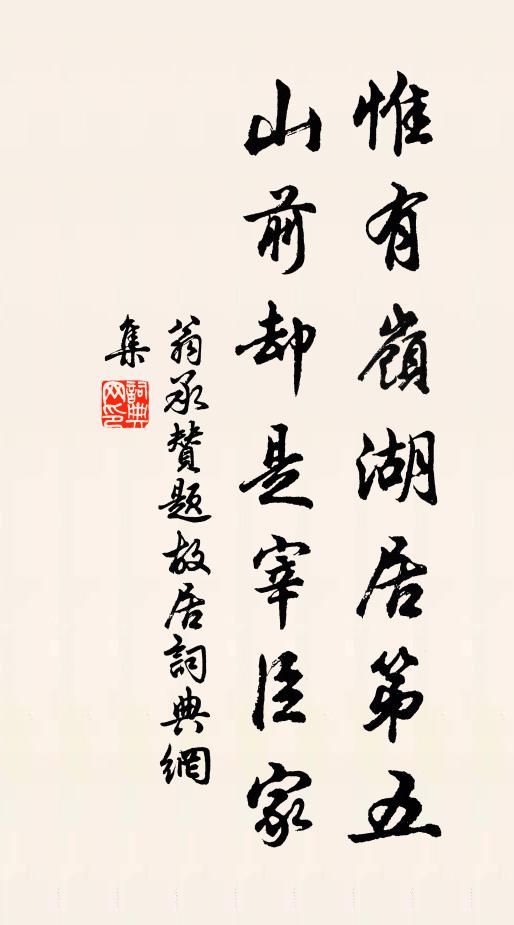 惟有嶺湖居第五
山前却是宰臣家
翁承贊題故居詞典網
集
詞典
网印